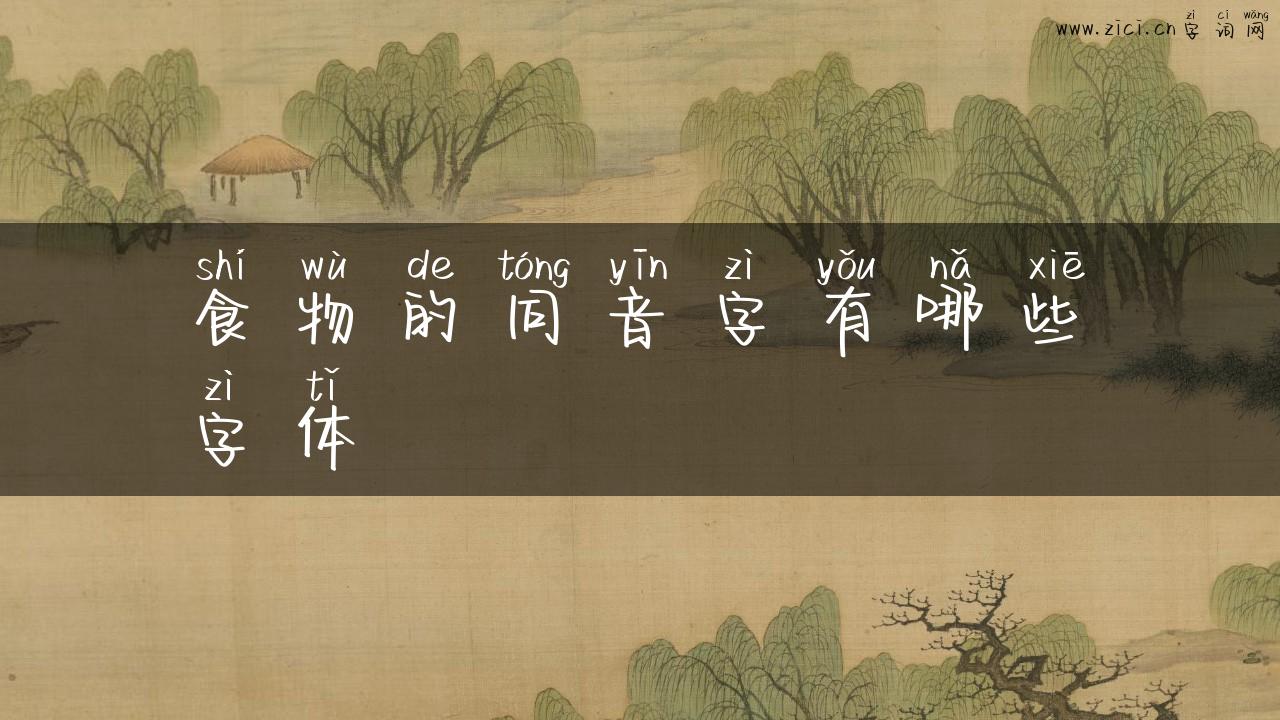 zì cí wǎng
www.zici.cn 字 词 网
shí wù de tóng yīn zì yǒu nǎ xiē
食 物 的 同 音 字 有 哪 些
zì tǐ
字 体